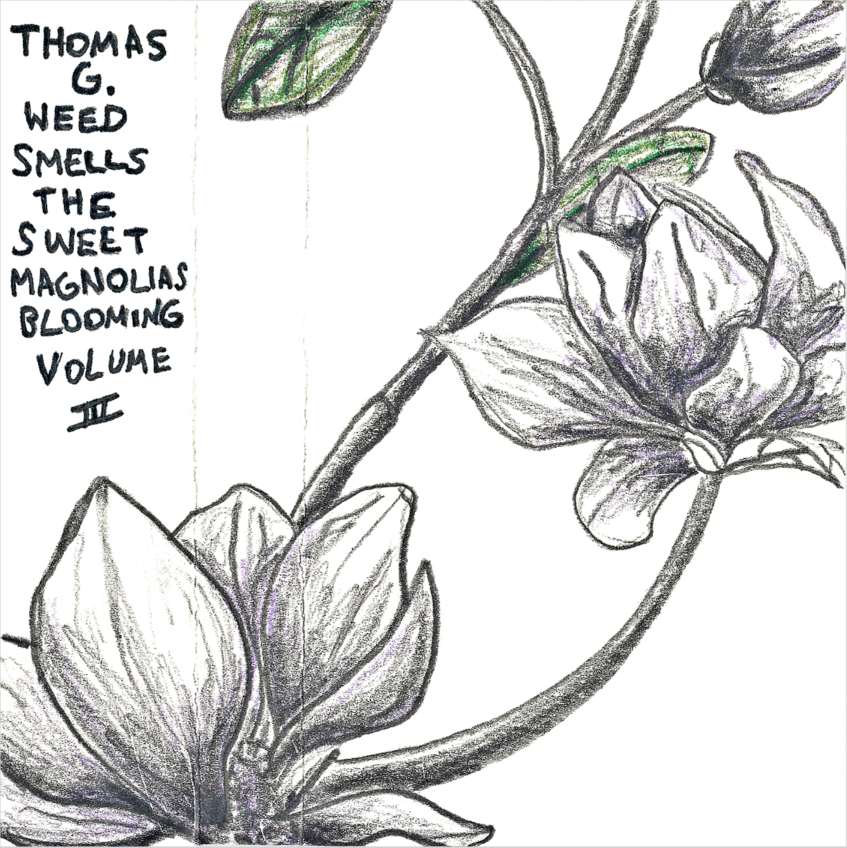 THOMAS
G.
WEED
SMELLS
THE
SWEET
MAGNOLIAS
BLOOMING
VOLUME
III